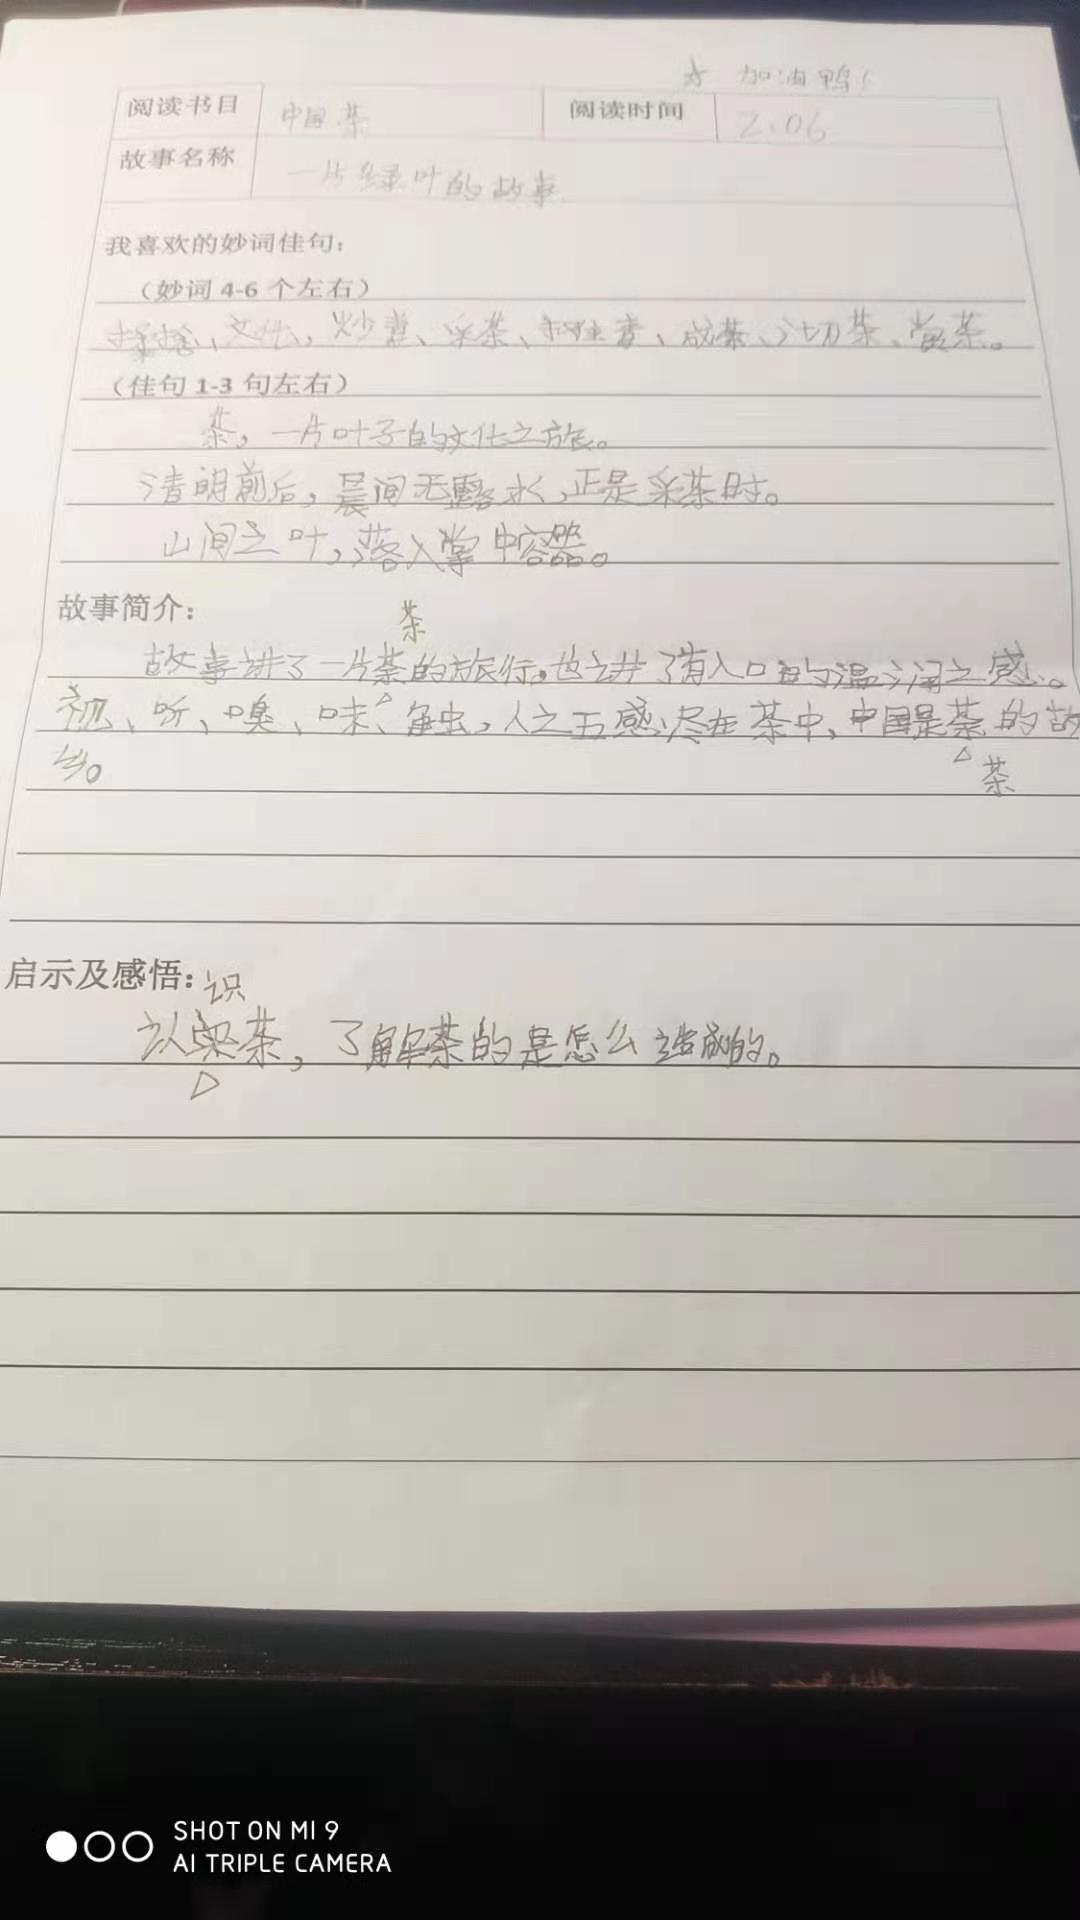 ☆ 加油鸭!
阅读书目 中国茶 阅读时间 2.06
故事名称 一片绿叶的故事
我喜欢的妙词佳句:
(妙词 4-6 个左右)
文化,炒青、采茶、成茶、沏茶、赏茶。
(佳句 1-3 句左右)
茶,一片叶子的文化之旅。
清明前后,晨间无露水,正是采茶时。
山间之叶,落入掌中容器。
故事简介:
茶
故事讲了一片茶的旅行。也讲了有入口的温润之感。
视、听、嗅、味、触,人之五感,尽在茶中,中国是茶的故
乡。
茶
启示及感悟:
识
认茶,了解茶的是怎么造成的。
SHOT ON MI 9
AI TRIPLE CAMERA